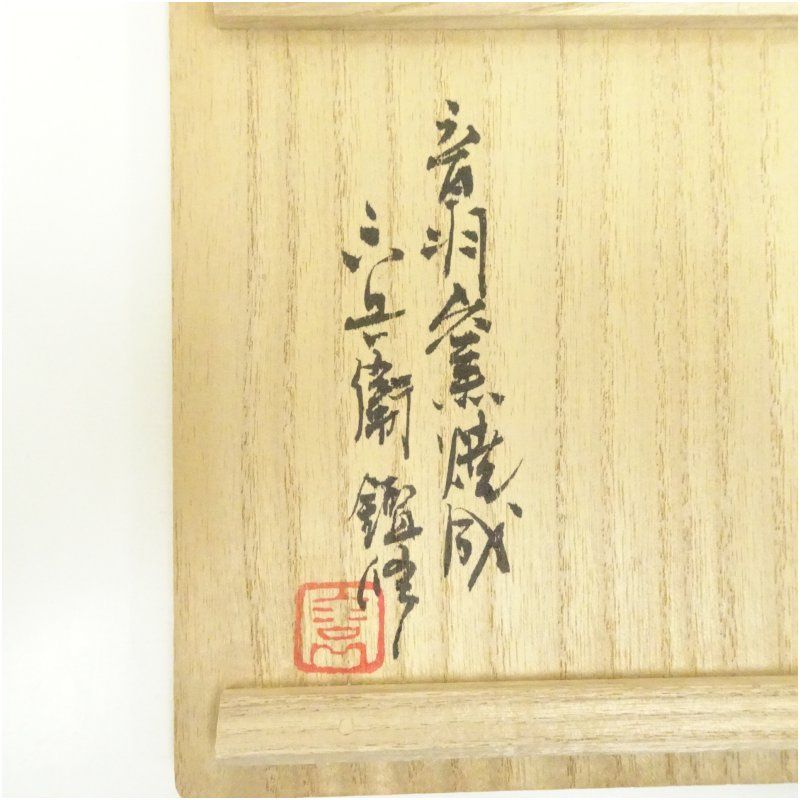 音羽窯焼成
六兵衛鑑修